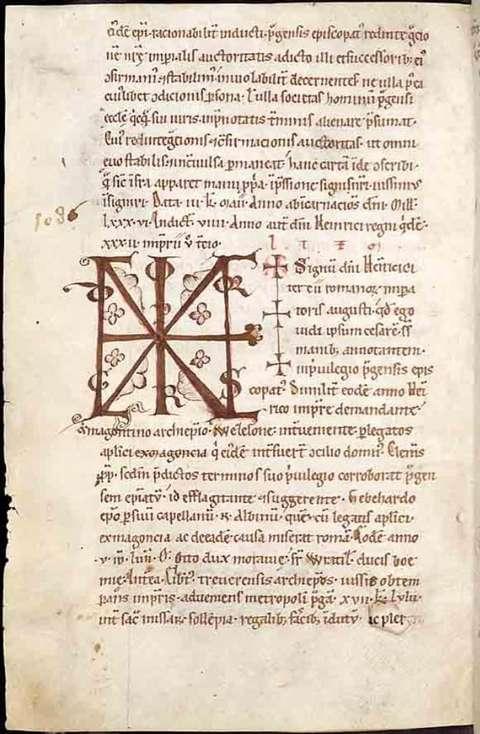 ei'dē ep̄i racionabilit' inducti p̄gensis episcopat' redinteg̃cio
nē nr̃e imp̄ialis auctoritatis a dicto illi et successorib; ei'
ɔfirmam' ⁊ stabilim' inviolabilit' decernentes ne ulla p̄ea
cui'libet ɔdicionis p̄sona l̄ ulla societas hominū p̄gensi
ęccl̄e q̄eq̃ sui iuris in p̄notatis t'minis alienare p̄sumat.
Cui' redinteg̃tionis ⁊ ɔfirmacionis auctoritas ut omni
euo stabilis ⁊ incōuulsa p̄maneat hanc cartā īde ɔscribi
q̄ sic īfra apparet manu p̄p̄a īp̄ssione sigilli n̄ri iussim'
īsigniri. Data iii. kl̄ maii. Anno ab īcarnaciōe dn̄i Mill̄
lxxx. vi. Indict̄ viiii. Anno aut' dn̄i Heinrici regni q'dē
xxxii. imperii v̄ t'cio.
1086
Signū dn̄i Heinrici
tercii romanor̄ imp̄a
toris augusti. q̄d ego
uidi ipsum cesarē ss
manib; annotantem.
in p̄uilegio p̄gensis epis
copat'. Dn̄i similit' eodē anno Hei
rico imp̄re demandante
magontino archiep̄o Wezelone. intueniente p̄ legatos
aplici ex mogoncia q̄ eidē int'fuert̄ ɔcilio domin' Clem̄s
p̄p. scdm̄ p̄dictos terminos suo p̄uilegio corroborat p̄gen
sem ep̄atū. id efflagitante ⁊ suggerente Gebehardo
ep̄o p̄ suū capellanū. n̄. Albinū. quē cū legatis aplici
ex magoncia ac de eadē causa miserat romā. Eodē anno
v. id. iun̄. O. Otto dux morauie. fr̄ Wratil̄. ducis boe
mie. Antea. Eilb̄t' treuerensis archiep̄os iussis obtem
p̄ans imp̄ris. adueniens metropoli p̄ga. xvii. kl̄ iulii.
int̄ sac̄ missar̄ sollēpnia. regalib; fascib; īdutū.